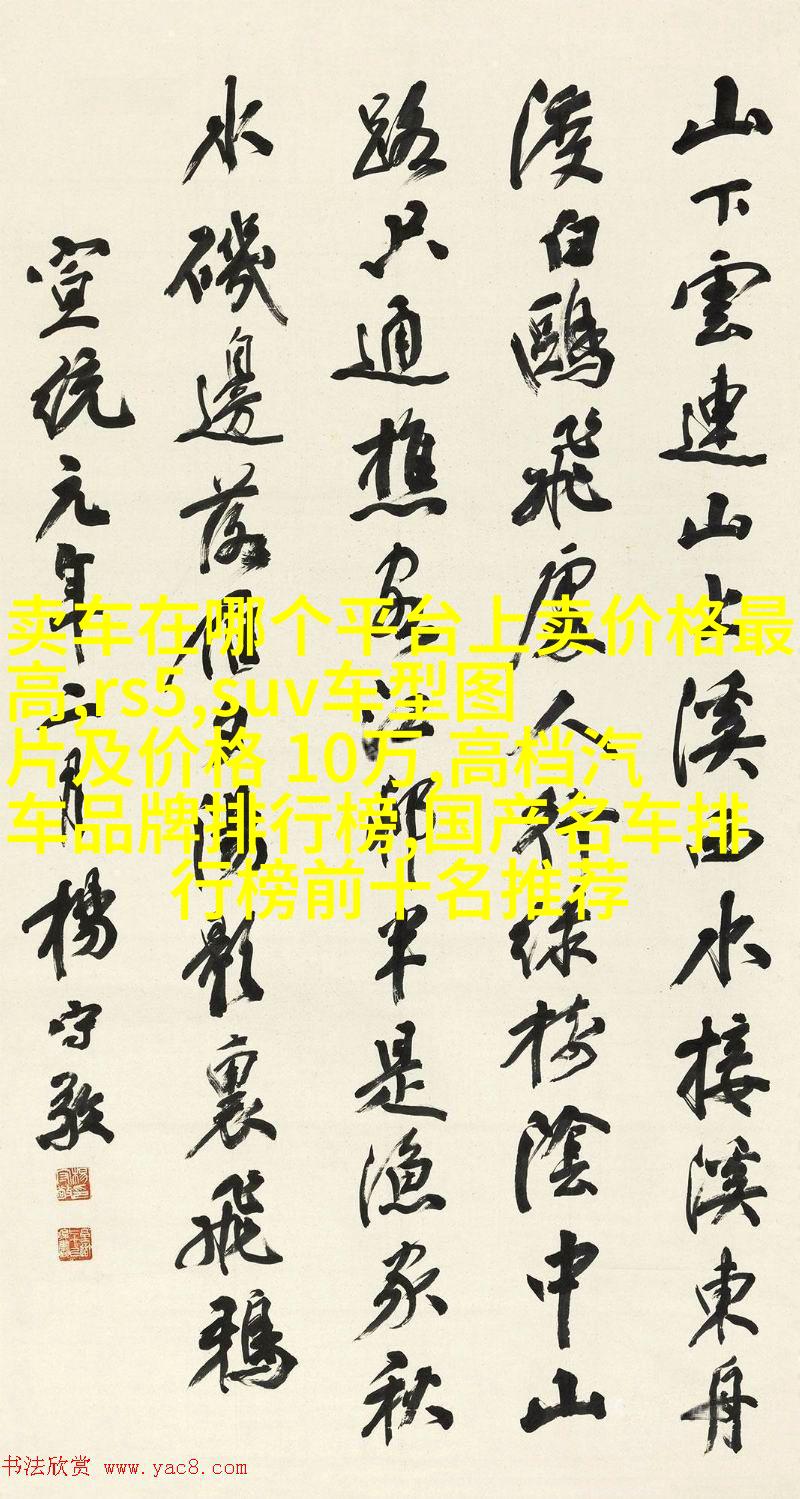 山下雲連山上溪西水接溪東舟
渡白鷗飛處人行綠樹陰中山
路只通樵客江邨半是漁家秋
水磯邊落雁夕陽影裏飛鴉
宣統元年二月楊守敬
卖车在哪个平台上卖价格最
高,rs5,suv车型图
片及价格 10万,高档汽
车品牌排行榜,国产名车排
行榜前十名推荐
书法欣赏 www.yac8.com